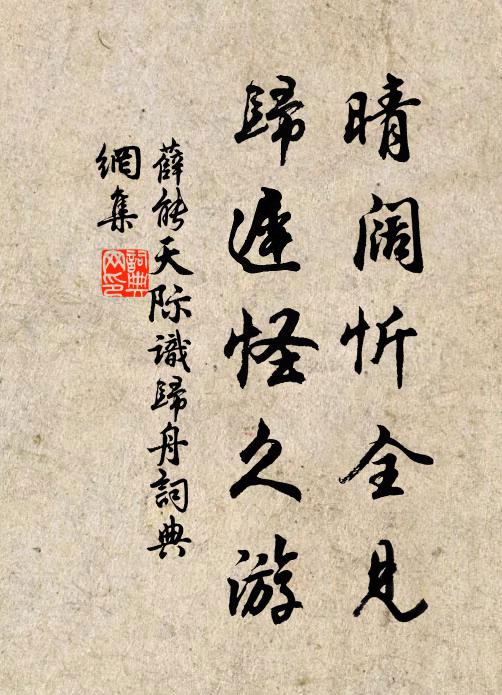 晴阔忻全見
歸遲怪久游
薛能天际識歸舟詞典
網集
詞典
网印